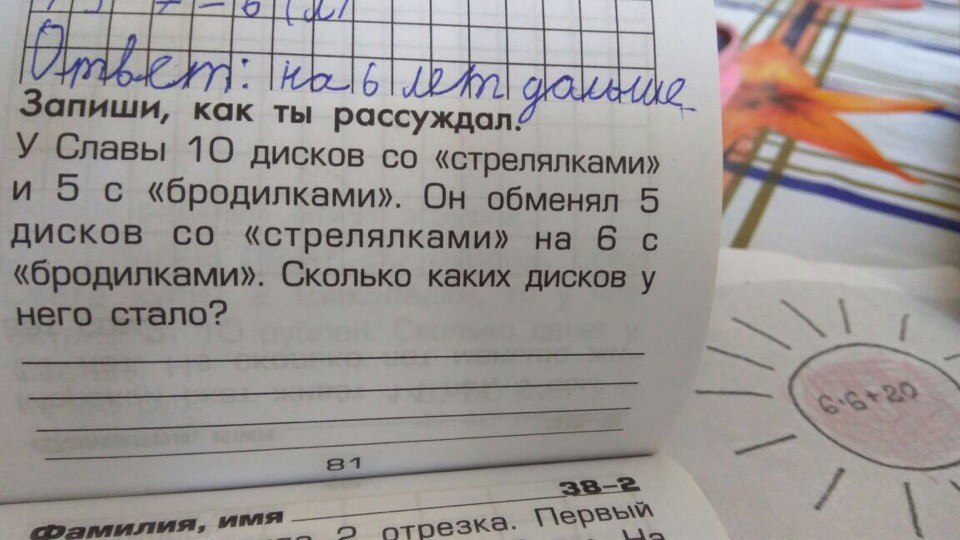 7 - 6 (л)
Ответ: на 6 лет дальше
Запиши, как ты рассуждал.
У Славы 10 дисков со «стрелялками»
и 5 с «бродилками». Он обменял 5
дисков со «стрелялками» на 6 с
«бродилками». Сколько каких дисков у
него стало?
81
38–2
Фамилия, имя
2 отрезка. Первый
На
6·6+20